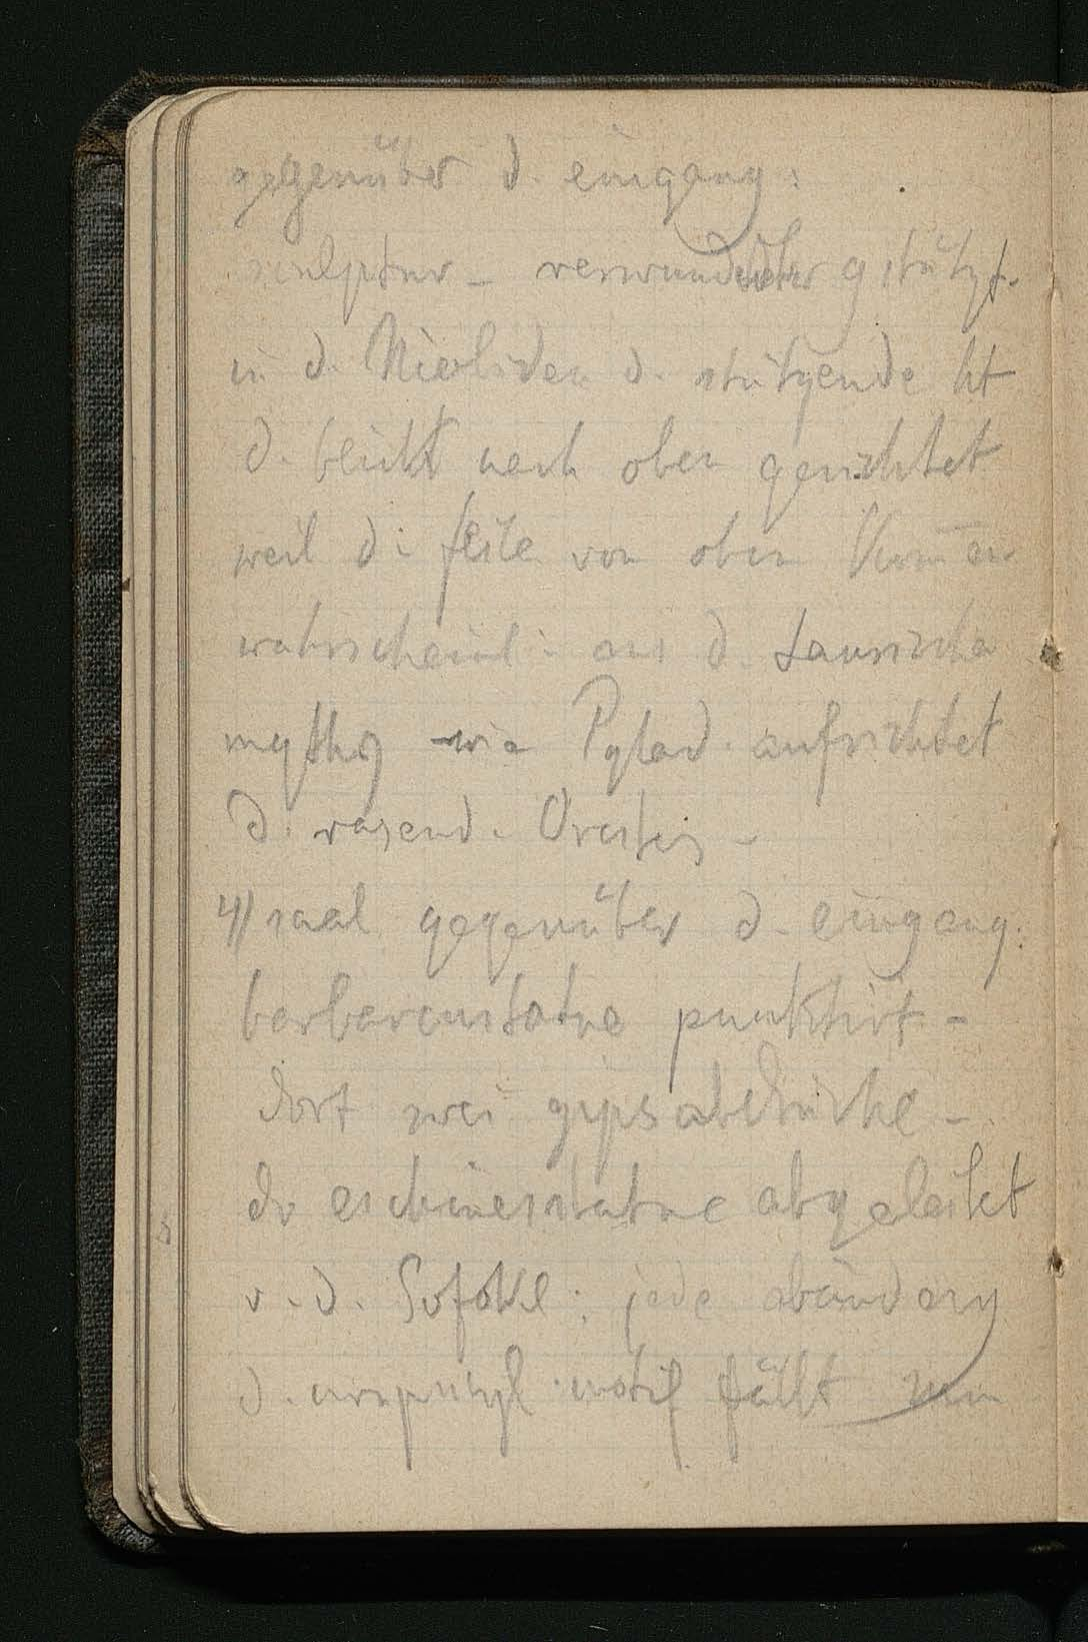 gegenüber d. eingang:
sculptur – verwundeter gstützt.
in d. Niobiden d. stützende ht
d. blickt nach oben gerichtet
weil d. feile von oben komen
wahrscheinl. aus d. taurische
mythos wie Pylad. aufrichtet
d. rasend. Orestes –
4) saal gegenüber d. eingang:
barbarenstatue punktirt –
dort zwei gypsabdrücke –
dr eschinesstatue abgeleitet
v. d. Sofokl. jede abänderg
d. ursprngl. motif fällt